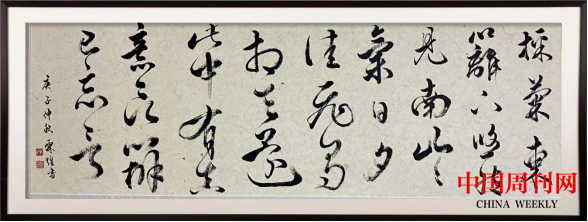 採菊東
籬下悠然
見南山々
氣日夕
佳飛鳥
相与還
此中有真
意欲辨
已忘言
庚子仲秋
中国周刊网
CHINA WEEKLY